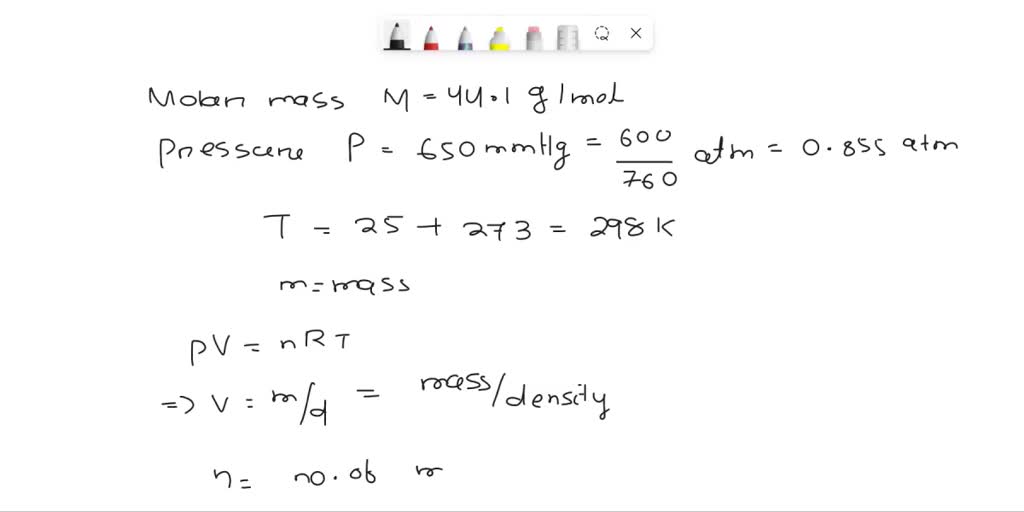 Molar mass M = 44.1 g/mol
Pressure P = 650 mmHg = 600/760 atm = 0.855 atm
T = 25 + 273 = 298 K
m = mass
PV = nRT
=> V = m/d = mass/density
n = no. of m